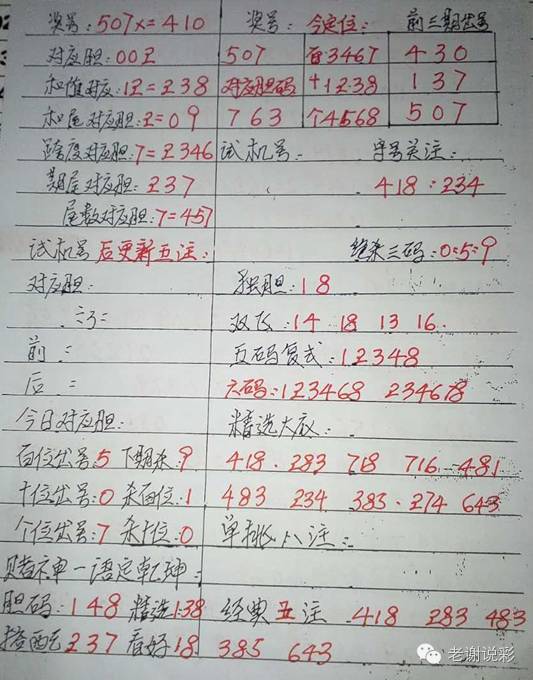 奖号:507x=410 奖号: 今定位: 前三期出号
对应胆:00Z 507 百3467 430
和值对应:12=238 对应胆码 十1238 137
和尾对应胆:2=09 763 个4568 507
跨度对应胆:7=2346 试机号: 字号关注:
期尾对应胆:237 418:234
尾数对应胆:7=457
试机号后更新五注: 绝杀三码:0:5:9
对应胆: 独胆:18
双飞:14 18 13 16
前: 五码复式:12348
后: 六码:123468 234678
今日对应胆: 精选大底:
百位出号:5 下期杀:9 418. 283 718 716 481
十位出号:0 杀百位:1 483 234 383. 274 643
个位出号:7 杀十位:0 单挑八注:
赌神一语定乾坤:
胆码:148 精选138 经典五注 418 283 483
搭配237 看好18 385 643
老谢说彩